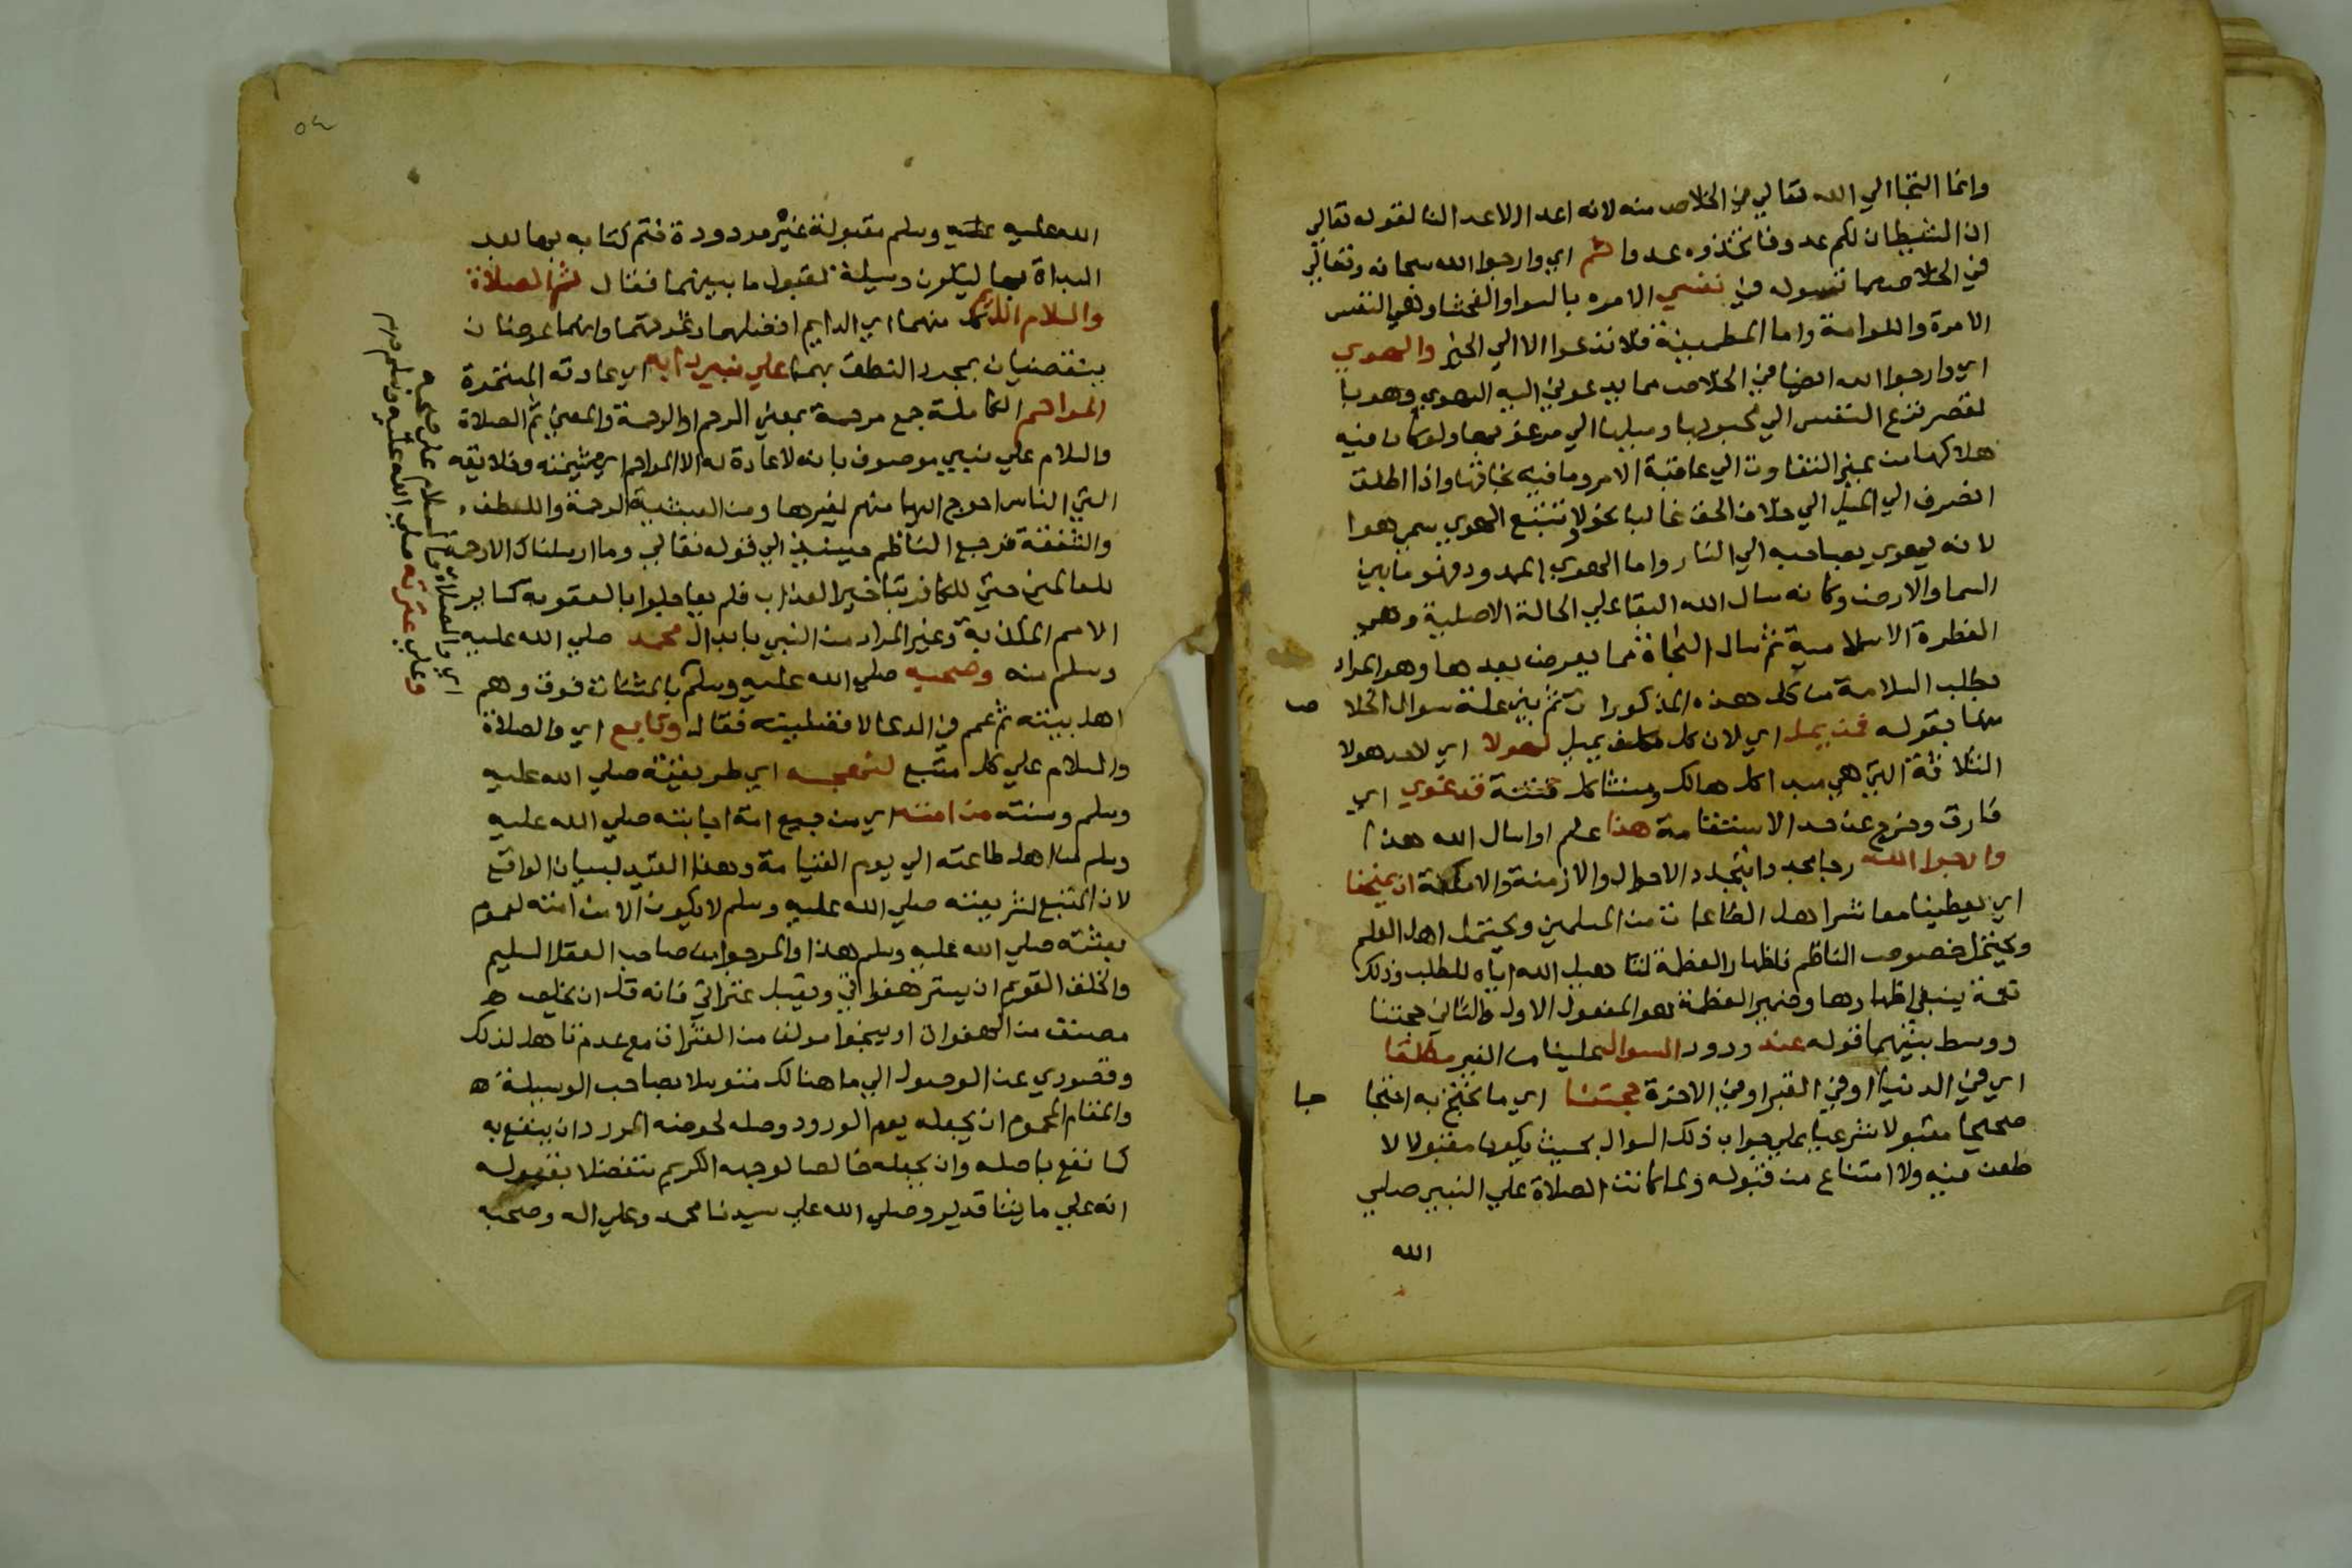 وانما التجا الي الله تعالي في الخلاص منه لانه اعدا الاعدا لنا لقوله تعالي
ان الشيطان لكم عدو فاتخذوه عدوا ثم اي وارجوا الله سبحانه وتعالي
في الخلاص مما تسوله في نفسي الامره بالسوا والفحشا وهي النفس
الامرة واللوامة واما المطمينة فلا تدعوا الا الي الخير والهوي
اي وارجوا الله ايضا في الخلاص مما يدعوني اليه الهوي وهو با
لقصر نزع النفس الي محبوبها وميلها الي مرغوبها ولو كان فيه
هلاكها من غير التفات الي عاقبة الامر وما فيه نجاتها واذا اطلق
انصرف الي الميل الي خلاف الحق غالبا نحو لا تتبع الهوي سمي هوا
لانه يهوي بصاحبه الي النار واما الهوي الممدود فهو ما بين
السما والارض وكانه سال الله البقا علي الحالة الاصلية وهي
الفطرة الاسلامية ثم سال النجاة مما يعرض بعدها وهو المراد
بطلب السلامة من كل هذه المذكورات ثم بين علة سوال الخلا ص
منها بقوله فمن يمل اي لان كل مكلف يميل لهولا اي لاحد هولا
الثلاثة التي هي مبدا كل هالك ومنشا كل فتنة قد غوي اي
فارق وخرج عن حد الاستقامة هذا علم او اسال الله هذا
وارجوا الله رجا مجددا بتجدد الاحوال والازمنة والامكنة ان يمنحنا
اي يعطينا معاشر اهل الطاعات من المسلمين ويحتمل اهل العلم
ويحتمل خصوص الناظم فاظهار العظمة لتاهيل الله اياه للطلب وذلك
نعمة ينبغي اظهارها وضمير العظمة هو المفعول الاول والثاني حجتنا
ووسط بينهما قوله عند ورود السوال علينا من الغير مطلقا
اي في الدنيا او في القبر او في الاخرة حجتنا اي ما نحتج به احتجا جا
صحيحا مقبولا شرعيا علي جواب ذلك السوال بحيث يكون مقبولا لا
طعن فيه ولا امتناع من قبوله ولما كانت الصلاة علي النبي صلي
الله
٥٤
الله عليه عليه وسلم مقبولة غير مردودة ختم كتابه بها بعد
البداة بها ليكون وسيلة لقبول ما بينهما فقال ثم الصلاة
والسلام الدايم منهما اي الدايم افضلهما وانهما عرضان
ينقضيان بمجرد النطق بهما علي نبي دابه اي عادته المستمرة
المراحم الكاملة جمع مرحمة بمعني الرحم او الرحمة والمعني ثم الصلاة
والسلام علي نبي موصوف بانه لا عادة له الا المراحم اي وخلايقه
التي الناس احوج اليها منهم لغيرها ومن الرحمة واللطف
والشفقة فرجع الناظم الي قوله تعالي وما ارسلناك الا رحمة
للعالمين حتي للكافر بتاخير العذاب فلم يعاجلوا بالعقوبة كساير
الامم المكذبة وعين المراد من النبي بابدال محمد صلي الله عليه
وسلم منه وصحبه صلي الله عليه وسلم بالمثناة فوق وهم
اهل بيته ثم عمم في الدعا لافضليته فقال وتابع اي والصلاة
والسلام علي كل متبع لنهجه اي طريقته صلي الله عليه
وسلم وسنته من امته اي من جميع امة اجابته صلي الله عليه
وسلم من اهل طاعته الي يوم القيامة وهذا القيد لبيان الواقع
لان المتبع لشريعته صلي الله عليه وسلم لا يكون الا من امته لعموم
بعثته صلي الله عليه وسلم هذا والمرجوا من صاحب العقل السليم
والخلق القويم ان يستر هفواتي ويقيل عثراتي فانه قل ان يخلص
مصنف من الهفوات او ينجوا مولف من العثرات مع عدم تاهل لذلك
وقصوري عن الوصول الي ما هنالك متوسلا بصاحب الوسيلة
والمقام المحمود ان يجعله يوم الورود وصله لحوضه المورد ان ينفع به
كما نفع باصله وان يجعله خالصا لوجهه الكريم متفضلا بقبوله
انه علي ما يشا قدير وصلي الله علي سيدنا محمد وعلي اله وصحبه
اي والصلاة والسلام علي صحبه
وعلي عترته صلي الله عليه وسلم